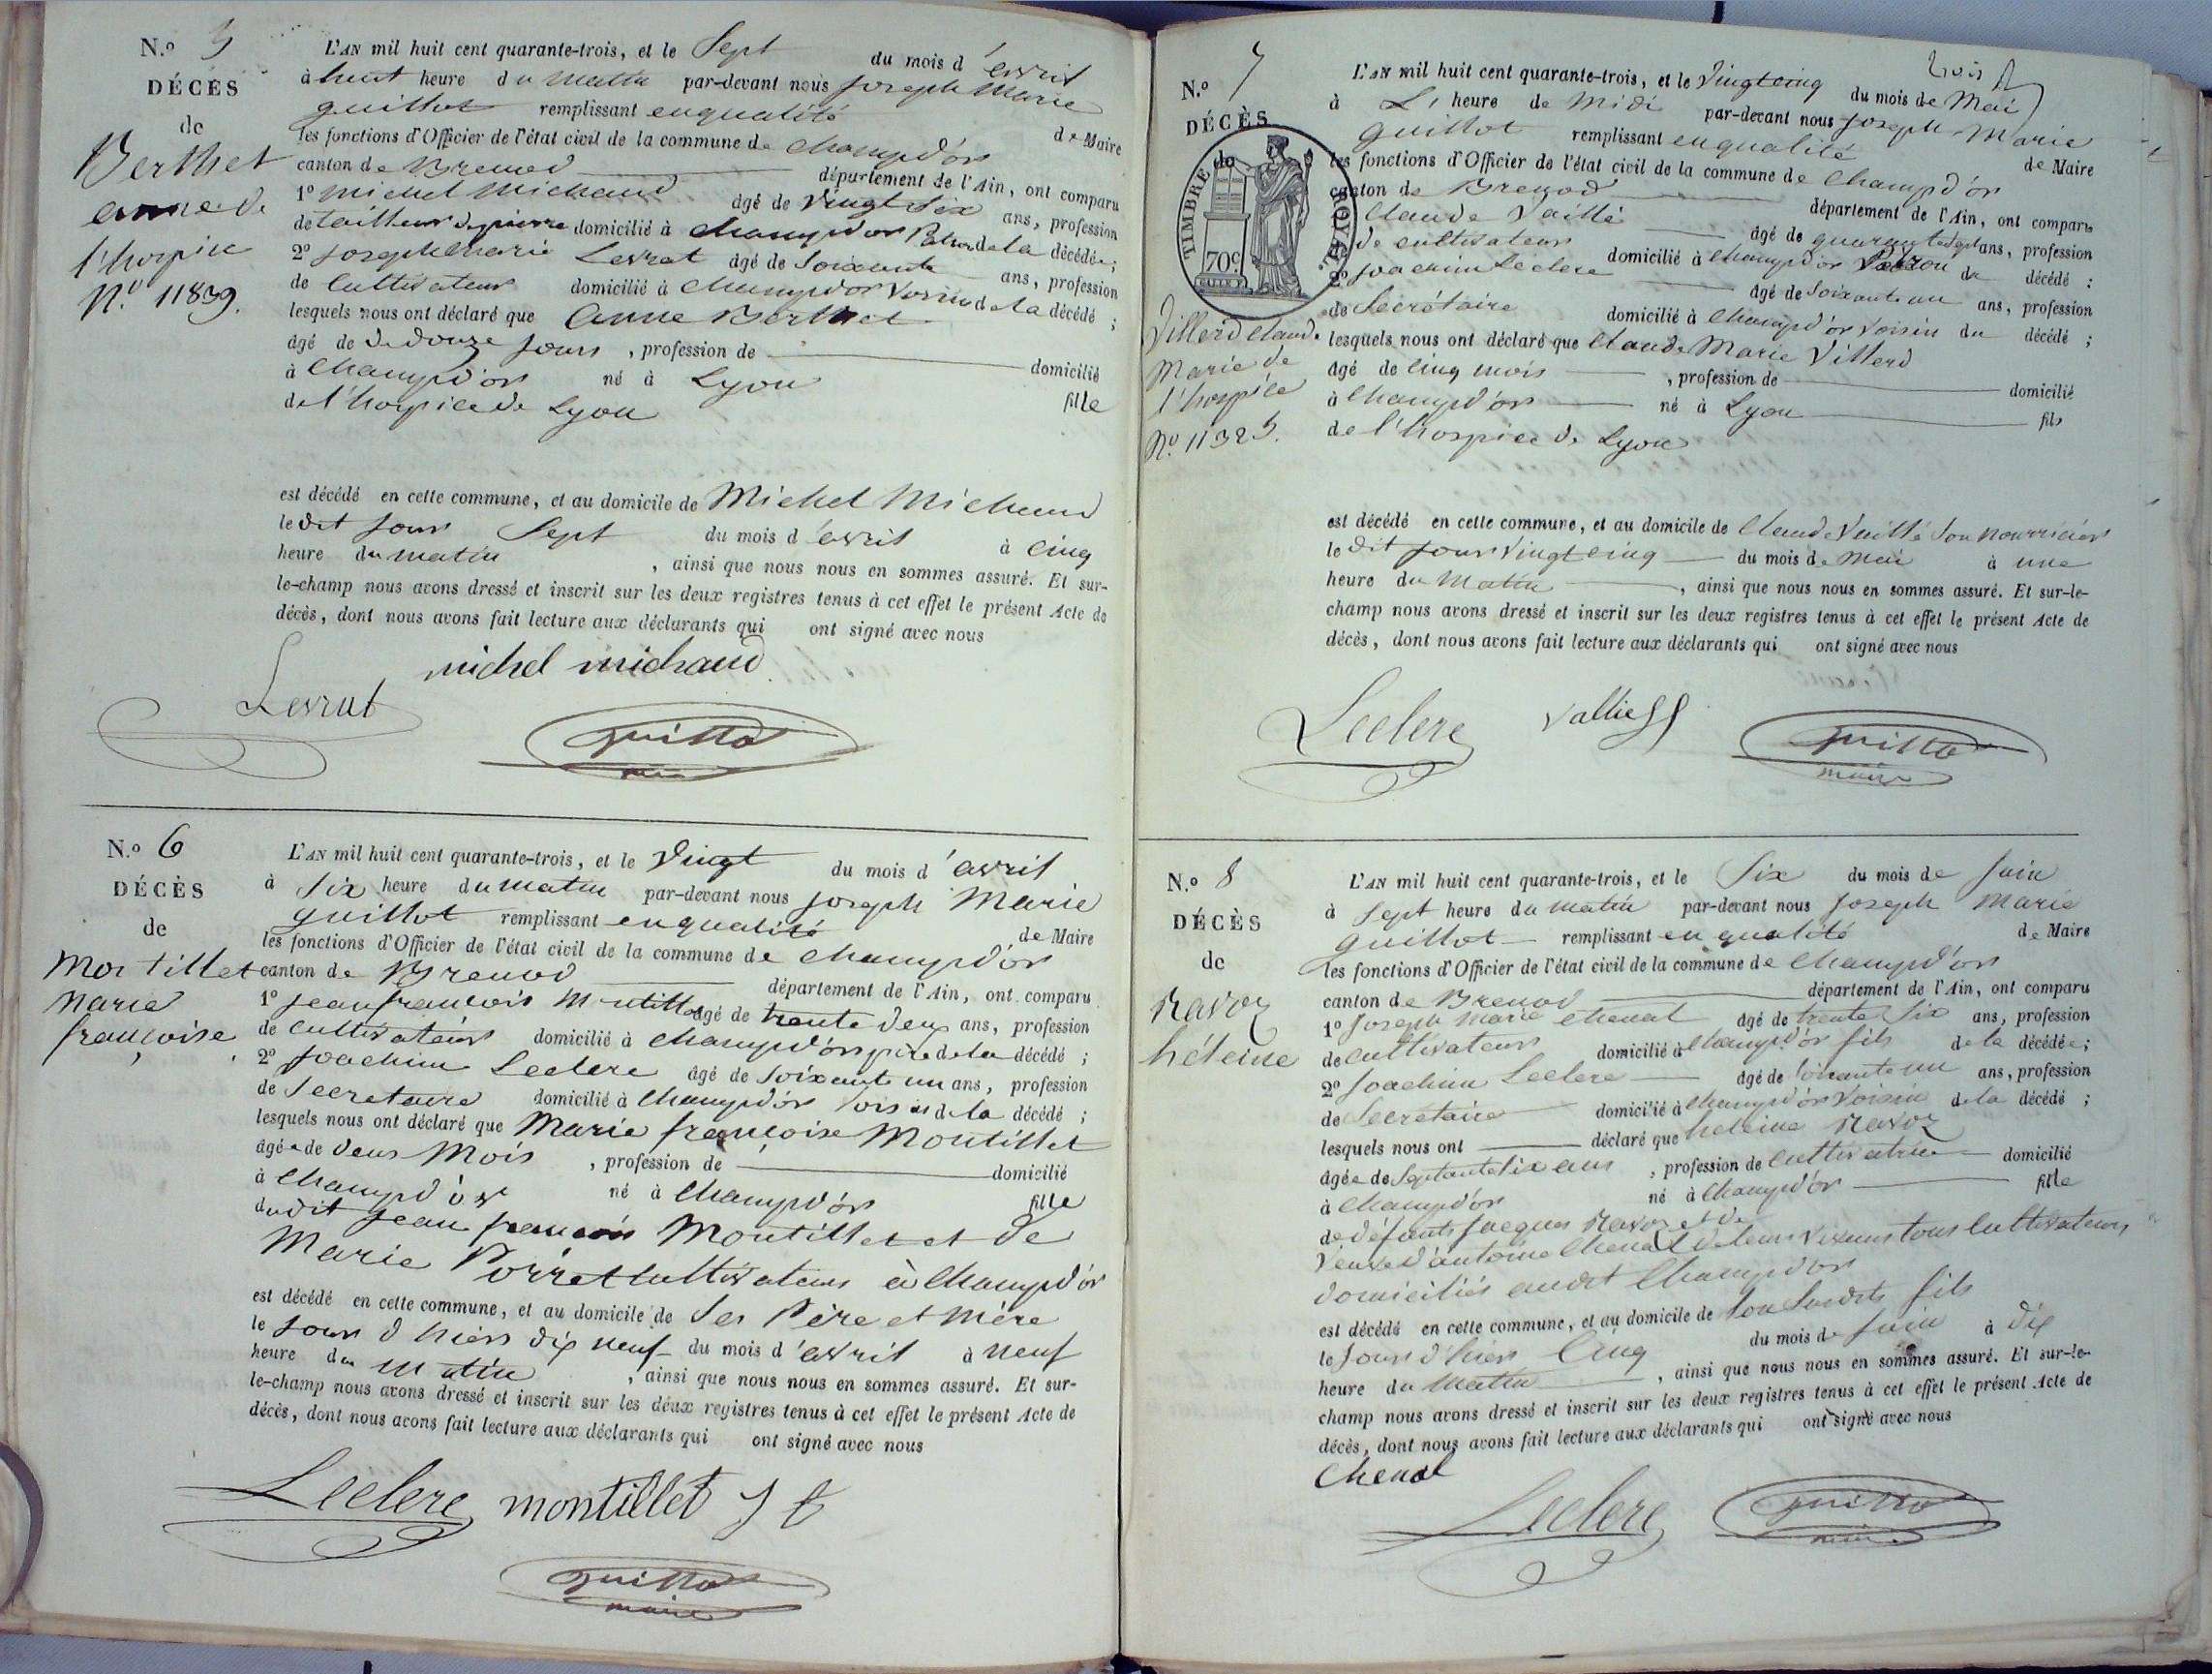 N.o 5
DÉCÈS
de
Berthet
anne de
l'hospice
N.o 11839.
L'AN mil huit cent quarante-trois, et le Sept du mois d'avril
à huit heure du matin par-devant nous joseph Marie
guillot remplissant en qualité de Maire
les fonctions d'Officier de l'état civil de la commune de Champd'or
canton de Brenod département de l'Ain, ont comparu
1o michel Michaud âgé de vingt Six ans, profession
de tailleur de pierre domicilié à champdor Patron de la décédée;
2o joseph Marie Levrat âgé de Soixante ans, profession
de Cultivateur domicilié à Champdor Voisin de la décédé;
lesquels nous ont déclaré que Anne Berthet
âgé de de douze jours, profession de domicilié
à Champd'or né à Lyon fille
de l'hospice de Lyon
est décédé en cette commune, et au domicile de Michel Michaud
le dit jour Sept du mois d'avril à cinq
heure du matin, ainsi que nous nous en sommes assuré. Et sur-
le-champ nous avons dressé et inscrit sur les deux registres tenus à cet effet le présent Acte de
décès, dont nous avons fait lecture aux déclarants qui ont signé avec nous
michel michaud
Levrat
guillot
maire
N.o 6
DÉCÈS
de
Montillet
Marie
françoise
L'AN mil huit cent quarante-trois, et le Vingt du mois d'avril
à Six heure du matin par-devant nous joseph Marie
guillot remplissant en qualité de Maire
les fonctions d'Officier de l'état civil de la commune de Champd'or
canton de Brenod département de l'Ain, ont comparu
1o jean françois Montillet âgé de trente deux ans, profession
de Cultivateur domicilié à Champd'or père de la décédé;
2o Joachim Leclerc âgé de Soixante un ans, profession
de Secretaire domicilié à Champd'or Voisin de la décédé;
lesquels nous ont déclaré que Marie françoise Montillet
âgée de deux Mois, profession de domicilié
à Champd'or né à Champd'or fille
dudit jean françois Montillet et de
Marie Porret Cultivateurs à Champd'or
est décédé en cette commune, et au domicile de Ses Père et mère
le jour d'hiers dix neuf du mois d'avril à neuf
heure du Matin, ainsi que nous nous en sommes assuré. Et sur-
le-champ nous avons dressé et inscrit sur les deux registres tenus à cet effet le présent Acte de
décès, dont nous avons fait lecture aux déclarants qui ont signé avec nous
Leclerc montillet J f
guillot
maire
trois
N.o 7
DÉCÈS
TIMBRE ROYAL
70c
Villerd Claude
Marie de
l'hospice
N.o 11325.
L'AN mil huit cent quarante-trois, et le Vingt cinq du mois de Mai
à L' heure de Midi par-devant nous joseph Marie
guillot remplissant en qualité de Maire
les fonctions d'Officier de l'état civil de la commune de Champd'or
canton de Brenod département de l'Ain, ont comparu
Claude Vaillé âgé de quarante sept ans, profession
de cultivateur domicilié à Champd'or Patron du décédé;
2o joachim Leclerc âgé de Soixante un ans, profession
de Secrétaire domicilié à Champd'or Voisin du décédé;
lesquels nous ont déclaré que Claude Marie Villerd
âgé de Cinq mois, profession de domicilié
à Champd'or né à Lyon fils
de l'hospice de Lyon
est décédé en cette commune, et au domicile de Claude Vaillé Son nourricier
le dit jour Vingt cinq du mois de Mai à une
heure du Matin, ainsi que nous nous en sommes assuré. Et sur-le-
champ nous avons dressé et inscrit sur les deux registres tenus à cet effet le présent Acte de
décès, dont nous avons fait lecture aux déclarants qui ont signé avec nous
Leclerc guillot
maire
N.o 8
DÉCÈS
de
Ravoz
héleine
L'AN mil huit cent quarante-trois, et le Six du mois de juin
à Sept heure du matin par-devant nous joseph Marie
guillot remplissant en qualité de Maire
les fonctions d'Officier de l'état civil de la commune de Champd'or
canton de Brenod département de l'Ain, ont comparu
1o Joseph Marie Chenal âgé de trente Six ans, profession
de cultivateur domicilié à Champd'or fils de la décédée;
2o Joachim Leclerc âgé de Soixante un ans, profession
de Secrétaire domicilié à Champd'or Voisin de la décédé;
lesquels nous ont déclaré que héleine Ravoz
âgée de Septante Six ans, profession de Cultivatrice domicilié
à Champd'or né à Champd'or fille
de défunts Jacques Ravoz et de
Veuve d'antoine Chenal de leurs vivants tous Cultivateurs
domiciliés audit Champdor
est décédé en cette commune, et au domicile de Son Susdits fils
le jour d'hiers Cinq du mois de juin à dix
heure du Matin, ainsi que nous nous en sommes assuré. Et sur-le-
champ nous avons dressé et inscrit sur les deux registres tenus à cet effet le présent Acte de
décès, dont nous avons fait lecture aux déclarants qui ont signé avec nous
Chenal
Leclerc guillot
maire